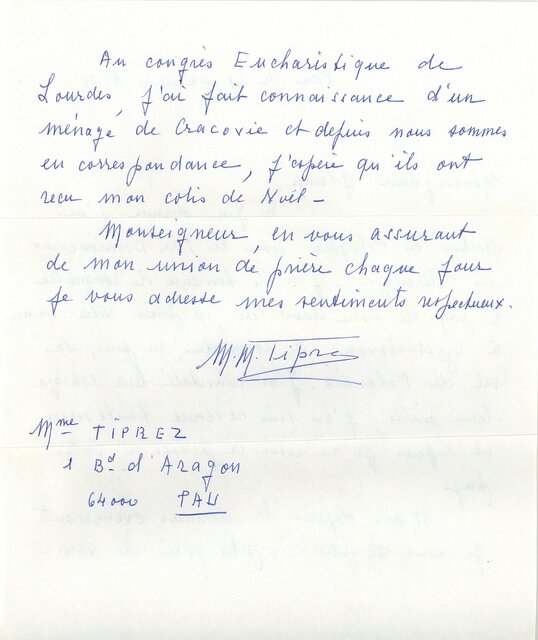 Au congrès Eucharistique de
Lourdes, j'ai fait connaissance d'un
ménage de Cracovie et depuis nous sommes
en correspondance, j'espère qu'ils ont
recu mon colis de Noël -
Monseigneur, en vous assurant
de mon union de prière chaque jour
je vous adresse mes sentiments respectueux.
M.M. Tiprez
Mme TIPREZ
1 Bd d'Aragon
64000 PAU